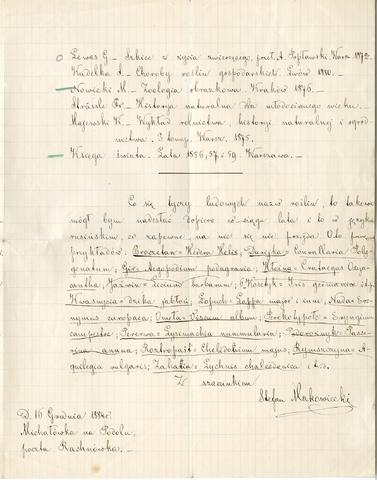 Lewes G – Szkice z życia zwierzęcego, przet. A. Popławski. Warsz. 1872.
Kudelka A. – Choroby roślin gospodarskich. Lwów 1880.
Nowicki M – Zoologia obrazkowa. Kraków 1876.
Strässle Fr. – Historya naturalna dla młodocianego wieku.
Majewski W. – Wykład rolnictwa, historyi naturalnej i ogrod
nictwa. Warsz. 1875.
Księga świata. Lata 1856, 57 i 59. Warszawa. –
Co się tyczy ludowych nazw roślin, to takowe
mógłbym nadesłać dopiero w ciągu lata i to w języku
rusińskim, co zapewne na nic się nie przyda. Oto parę
przykładów: Broczetan = Hedera Helix; = Convallaria Poly-
gonatum; Gir = Aegopodium podagraria; = Crataegus Oxya-
cantha; Jaźwin = Licium barbarum; Kosetyk = Iris germanica i d.p.
Kwasnycia = dzika jabłoń; Łopuch = Lappa major i inne; = Eu-
nymus europaea; Omeła = Viscum album; Perekotypole = Eryngium
campestre; = Lysimachia nummularia; Podorożnyk =
annua; Roztropast = Chelidonium majus; = A-
quilegia vulgaris; = Lychnis chalcedonica i t.d.
Z
szacunkiem
Stefan Makowiecki
D. 16 Grudnia 1884 r.
Michałówka na Podolu,
poczta Rachnówka. –